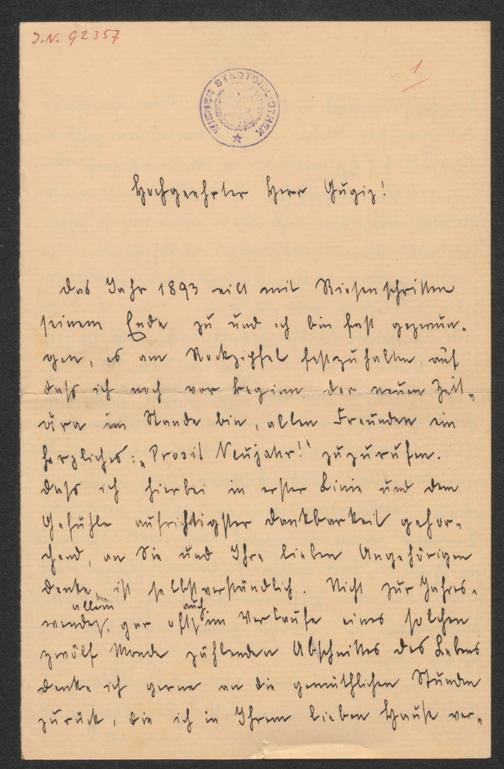 J.N. 92357
1
WIENER STADTBIBLIOTHEK
Hochgeehrter Herr Gugiz!
Das Jahr 1893 eilt mit Riesenschritten
seinem Ende zu und ich bin fast gezwun-
gen, es am Rockzipfel festzuhalten, auf
dass ich noch vor Beginn der neuen Zeit-
ära im Stande bin, allen Freunden ein
herzliches: „Prosit Neujahr!" zuzurufen.
Dass ich hierbei in erster Linie und dem
Gefühle aufrichtigster Dankbarkeit gehor-
chend, an Sie und Ihre lieben Angehörigen
denke, ist selbstverständlich. Nicht zur Jahres-
wende allein, gar oft auch im Verlaufe eines solchen
zwölf Monde zählenden Abschnittes des Lebens
denke ich gerne an die gemüthlichen Stunden
zurück, die ich in Ihrem lieben Hause ver-